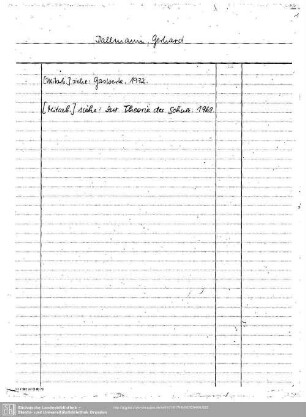 Dallmann, Gerhard
[Mitarb.] siehe: Gasherde. 1972.
[Mitarb.] siehe: Zur Theorie der Schule. 1969.
Sächsische Landesbibliothek –
Staats- und Universitätsbibliothek Dresden